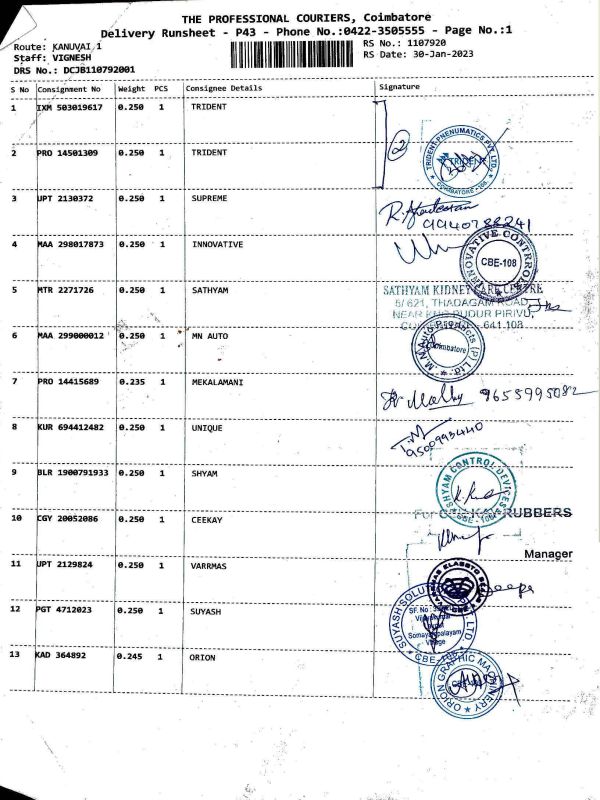 THE PROFESSIONAL COURIERS, Coimbatore
Delivery Runsheet - P43 - Phone No.:0422-3505555 - Page No.:1
Route: KANUVAI 1
RS No.: 1107920
Staff: VIGNESH
RS Date: 30-Jan-2023
DRS No.: DCJB110792001
S No Consignment No Weight PCS Consignee Details Signature
1 IXM 503019617 0.250 1 TRIDENT
2
2 PRO 14501309 0.250 1 TRIDENT
TRIDENT PHENUMATICS PVT LTD.
TRIDENT
COIMBATORE-108
3 UPT 2130372 0.250 1 SUPREME
9940788241
4 MAA 298017873 0.250 1 INNOVATIVE
INNOVATIVE CONTROL
CBE-108
5 MTR 2271726 0.250 1 SATHYAM
SATHYAM KIDNEY CARE CENTRE
5/621, THADAGAM ROAD,
NEAR PUDUR PIRIVU,
641 108
6 MAA 299000012 0.250 1 MN AUTO
M.N. Auto Products (P) Ltd.
Coimbatore
7 PRO 14415689 0.235 1 MEKALAMANI
9655995082
8 KUR 694412482 0.250 1 UNIQUE
9500993440
9 BLR 1900791933 0.250 1 SHYAM
SHYAM CONTROL DEVICES
CBE-108
10 CGY 20052086 0.250 1 CEEKAY
For RUBBERS
Manager
11 UPT 2129824 0.250 1 VARRMAS
12 PGT 4712023 0.250 1 SUYASH
SUYASH LTD
SF. No
Somayampalayam
Village
CBE-108
13 KAD 364892 0.245 1 ORION
ORION GRAPHIC MACHINERY